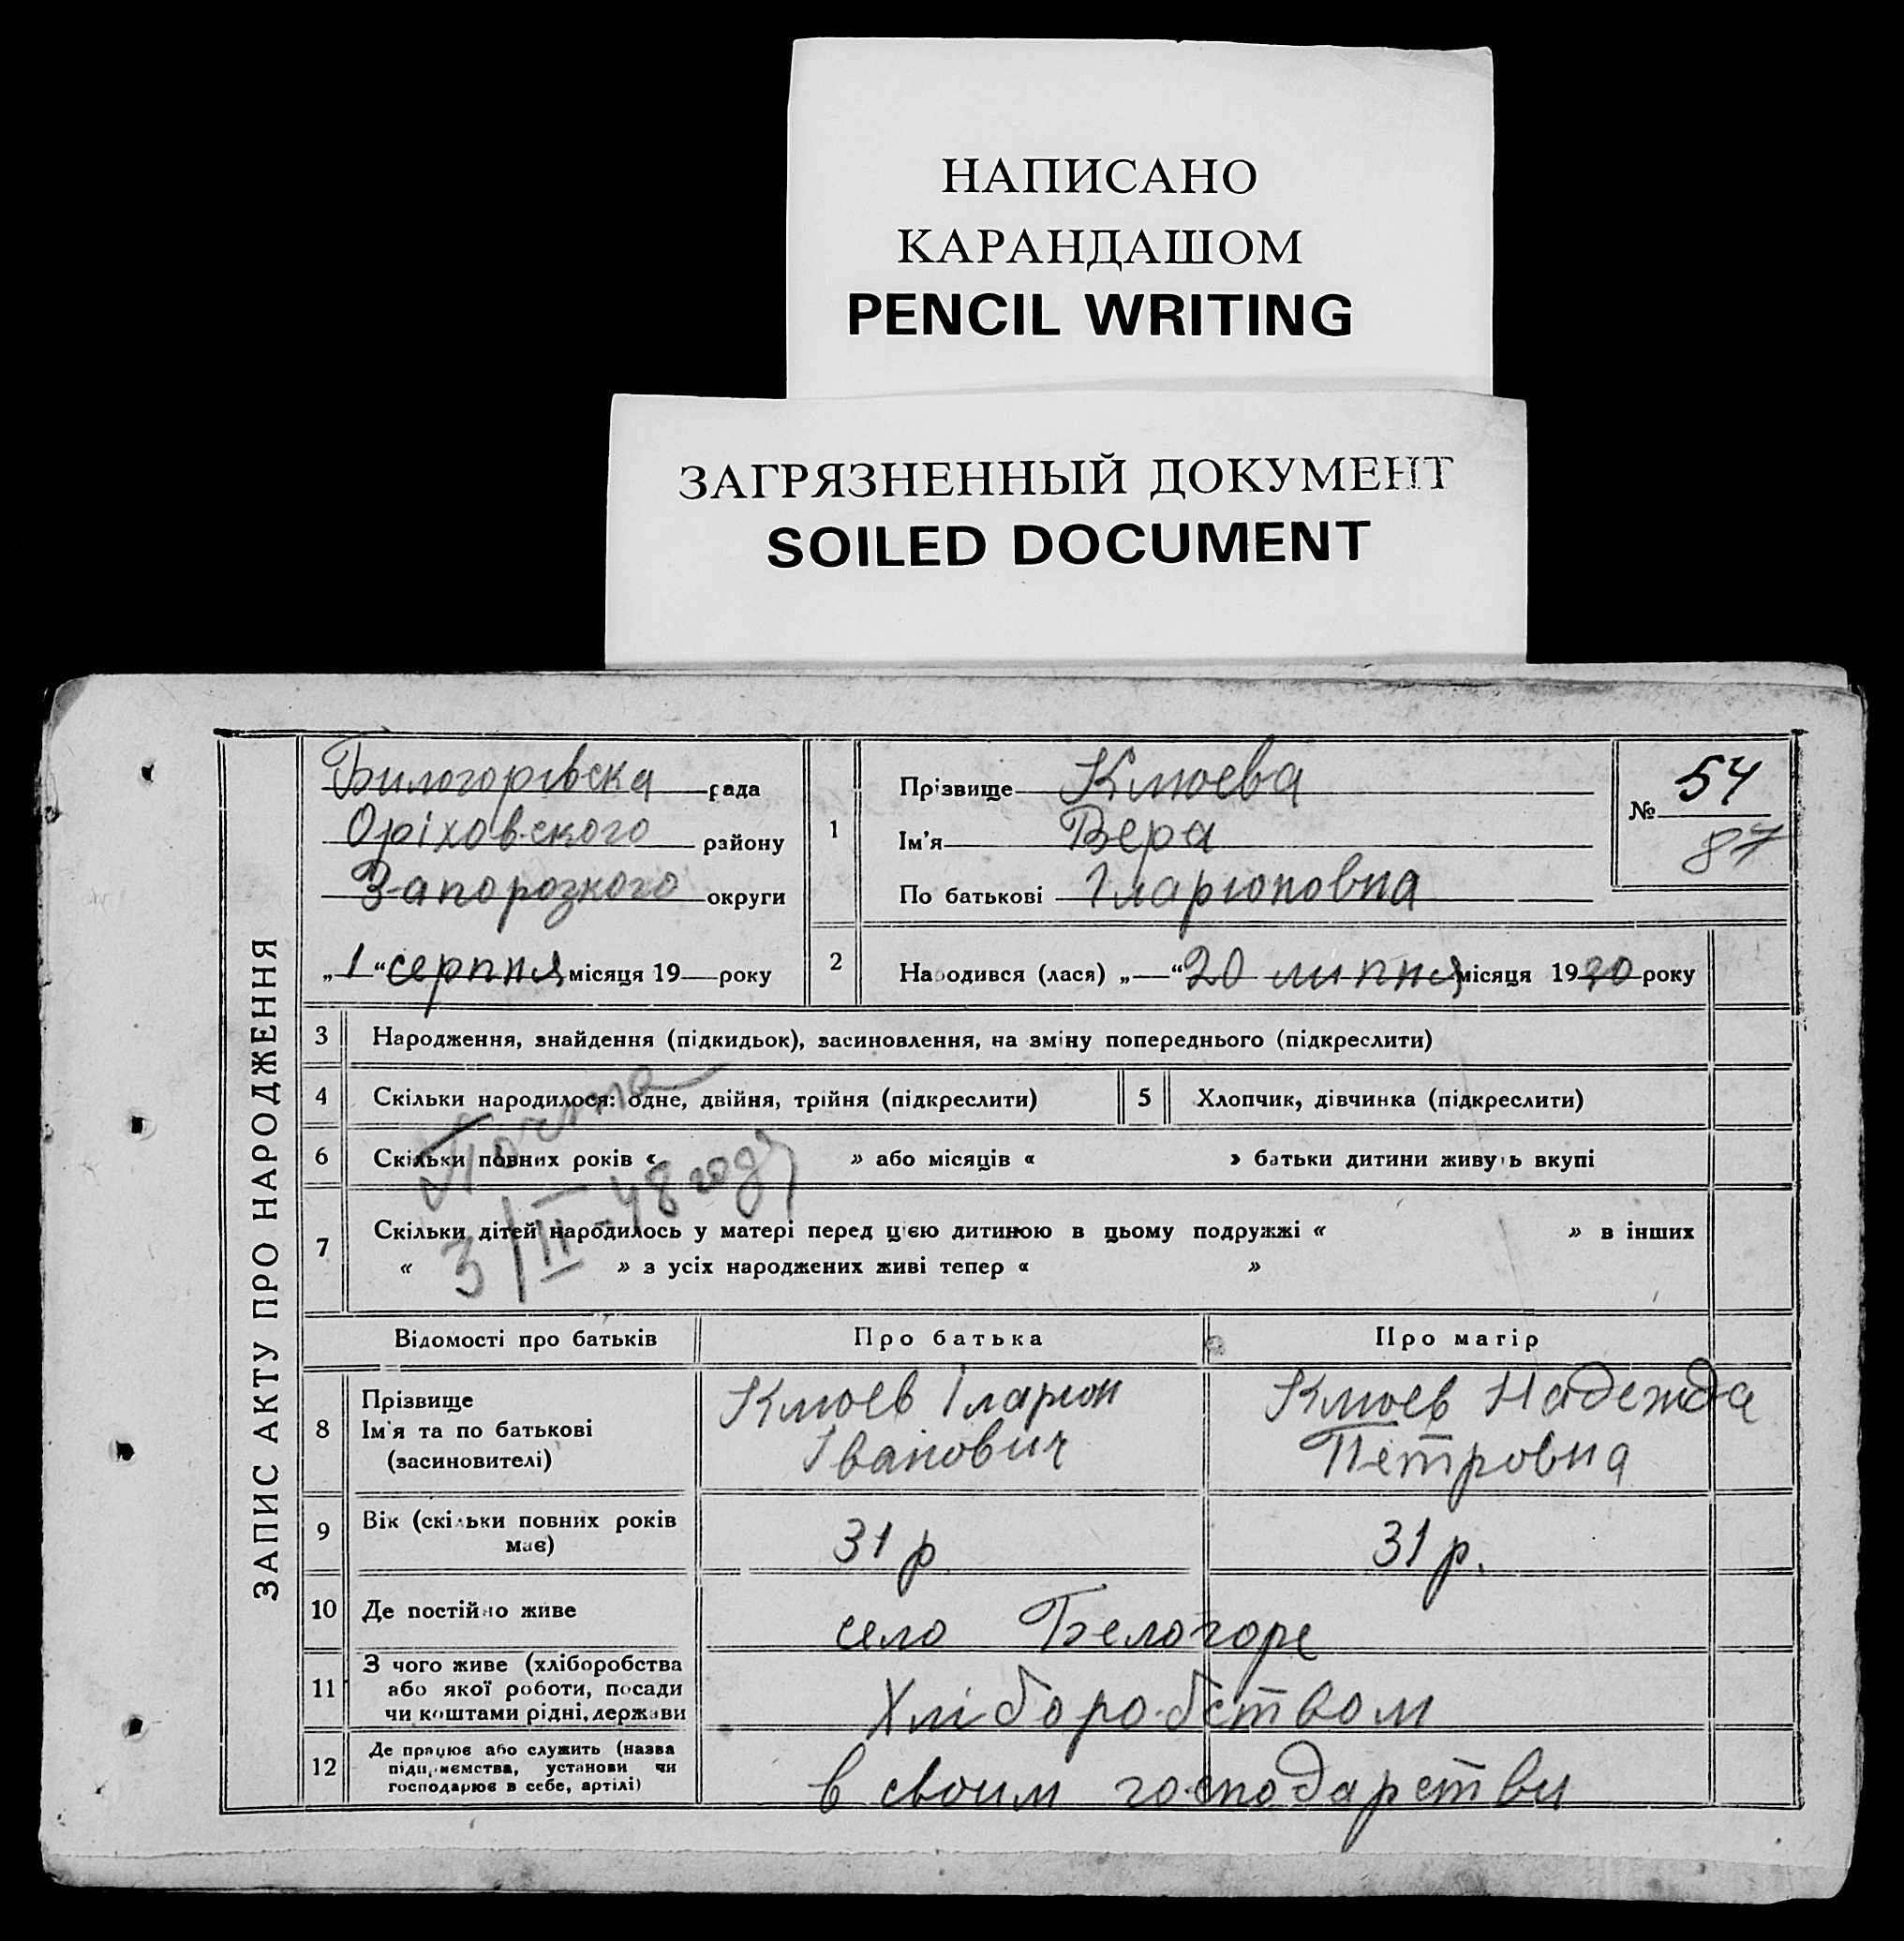 НАПИСАНО
КАРАНДАШОМ
PENCIL WRITING
ЗАГРЯЗНЕННЫЙ ДОКУМЕНТ
SOILED DOCUMENT
ЗАПИС АКТУ ПРО НАРОДЖЕННЯ
Билогорівска рада
Оріховского району
Запорозкого округи
„1“ серпня місяця 19 року
1
Прізвище Клюєва
Ім'я Вера
По батькові Іларіоновна
№ 54
87
2 Народився (лася) „ “ 20 липня місяця 1930 року
3 Народження, знайдення (підкидьок), засиновлення, на зміну попереднього (підкреслити)
4 Скільки народилося: одне, двійня, трійня (підкреслити)
5 Хлопчик, дівчинка (підкреслити)
6 Скільки повних років « » або місяців « » батьки дитини живуть вкупі
3/II-48 году
7 Скільки дітей народилось у матері перед цією дитиною в цьому подружжі « » в інших
« » з усіх народжених живі тепер « »
Відомості про батьків
Про батька
Про матір
8 Прізвище
Ім'я та по батькові
(засиновителі)
Клюев Іларион
Іванович
Клюев Надежда
Петровна
9 Вік (скільки повних років
має)
31 р
31 р.
10 Де постійно живе
село Белогоре
11 З чого живе (хліборобства
або якої роботи, посади
чи коштами рідні, держави
Хліборобством
12 Де працює або служить (назва
підприємства, установи чи
господарює в себе, артілі)
в своим господарстви